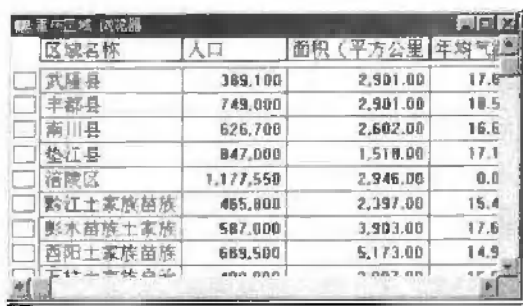 重庆区域 浏览器
区域名称 人口 面积（平方公里 年均气
武隆县 389,100 2,901.00 17.6
丰都县 749,000 2,901.00 18.5
南川县 626,700 2,602.00 16.6
垫江县 847,000 1,518.00 17.1
涪陵区 1,177,550 2,946.00 0.0
黔江土家族苗族 465,800 2,397.00 15.4
彭水苗族土家族 587,000 3,903.00 17.6
酉阳土家族苗族 689,500 5,173.00 14.9